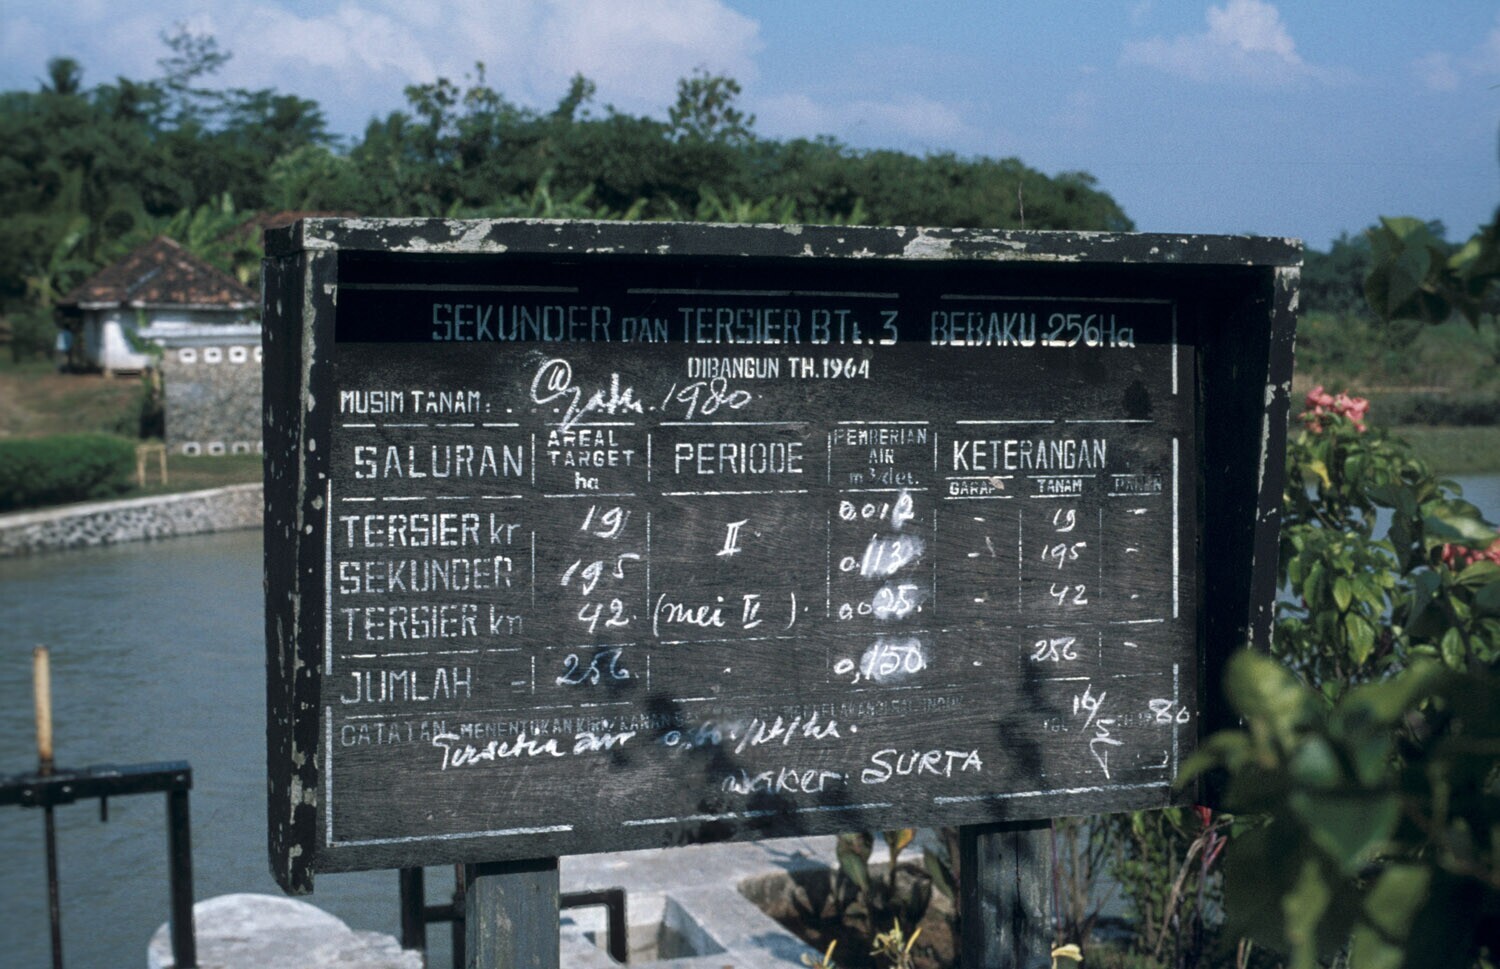 SEKUNDER DAN TERSIER BTt.3 BEBAKU:256Ha
DIBANGUN TH.1964
MUSIM TANAM: 1980
SALURAN AREAL TARGET ha PERIODE PEMBERIAN AIR m³/det. KETERANGAN
GARAP TANAM PANEN
TERSIER kr 19 II 0.012 - 19 -
SEKUNDER 195 0.113 - 195 -
TERSIER kn 42 (mei II) 0.025 - 42 -
JUMLAH = 256 - 0,150 - 256 -
CATATAN MENENTUKAN
Tersedia air /lt/ha. 16/5 80
waker: SURTA